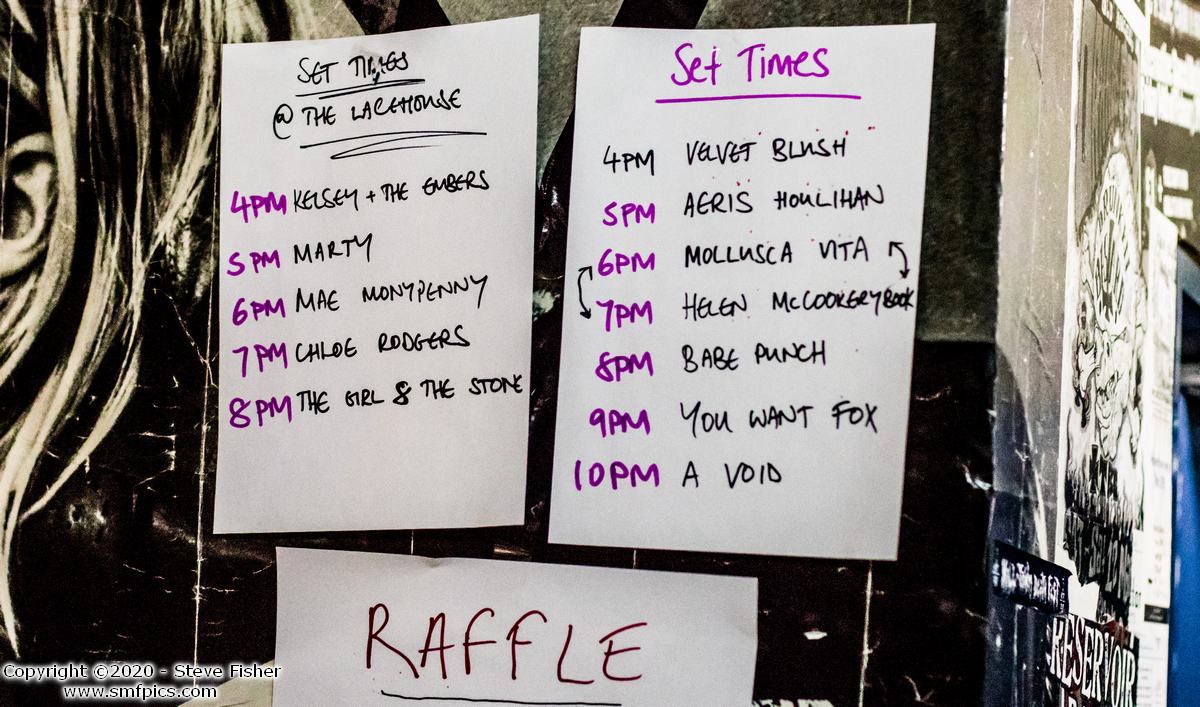 SET TIMES
@ THE LACEHOUSE
4PM KELSEY + THE EMBERS
5PM MARTY
6PM MAE MONYPENNY
7PM CHLOE RODGERS
8PM THE GIRL & THE STONE
Set Times
4PM VELVET BLUSH
5PM AERIS HOULIHAN
6PM MOLLUSCA VITA
7PM HELEN McCOOKERYBOOK
8PM BABE PUNCH
9PM YOU WANT FOX
10PM A VOID
RAFFLE
RESERVOIR
Copyright ©2020 - Steve Fisher
www.smfpics.com